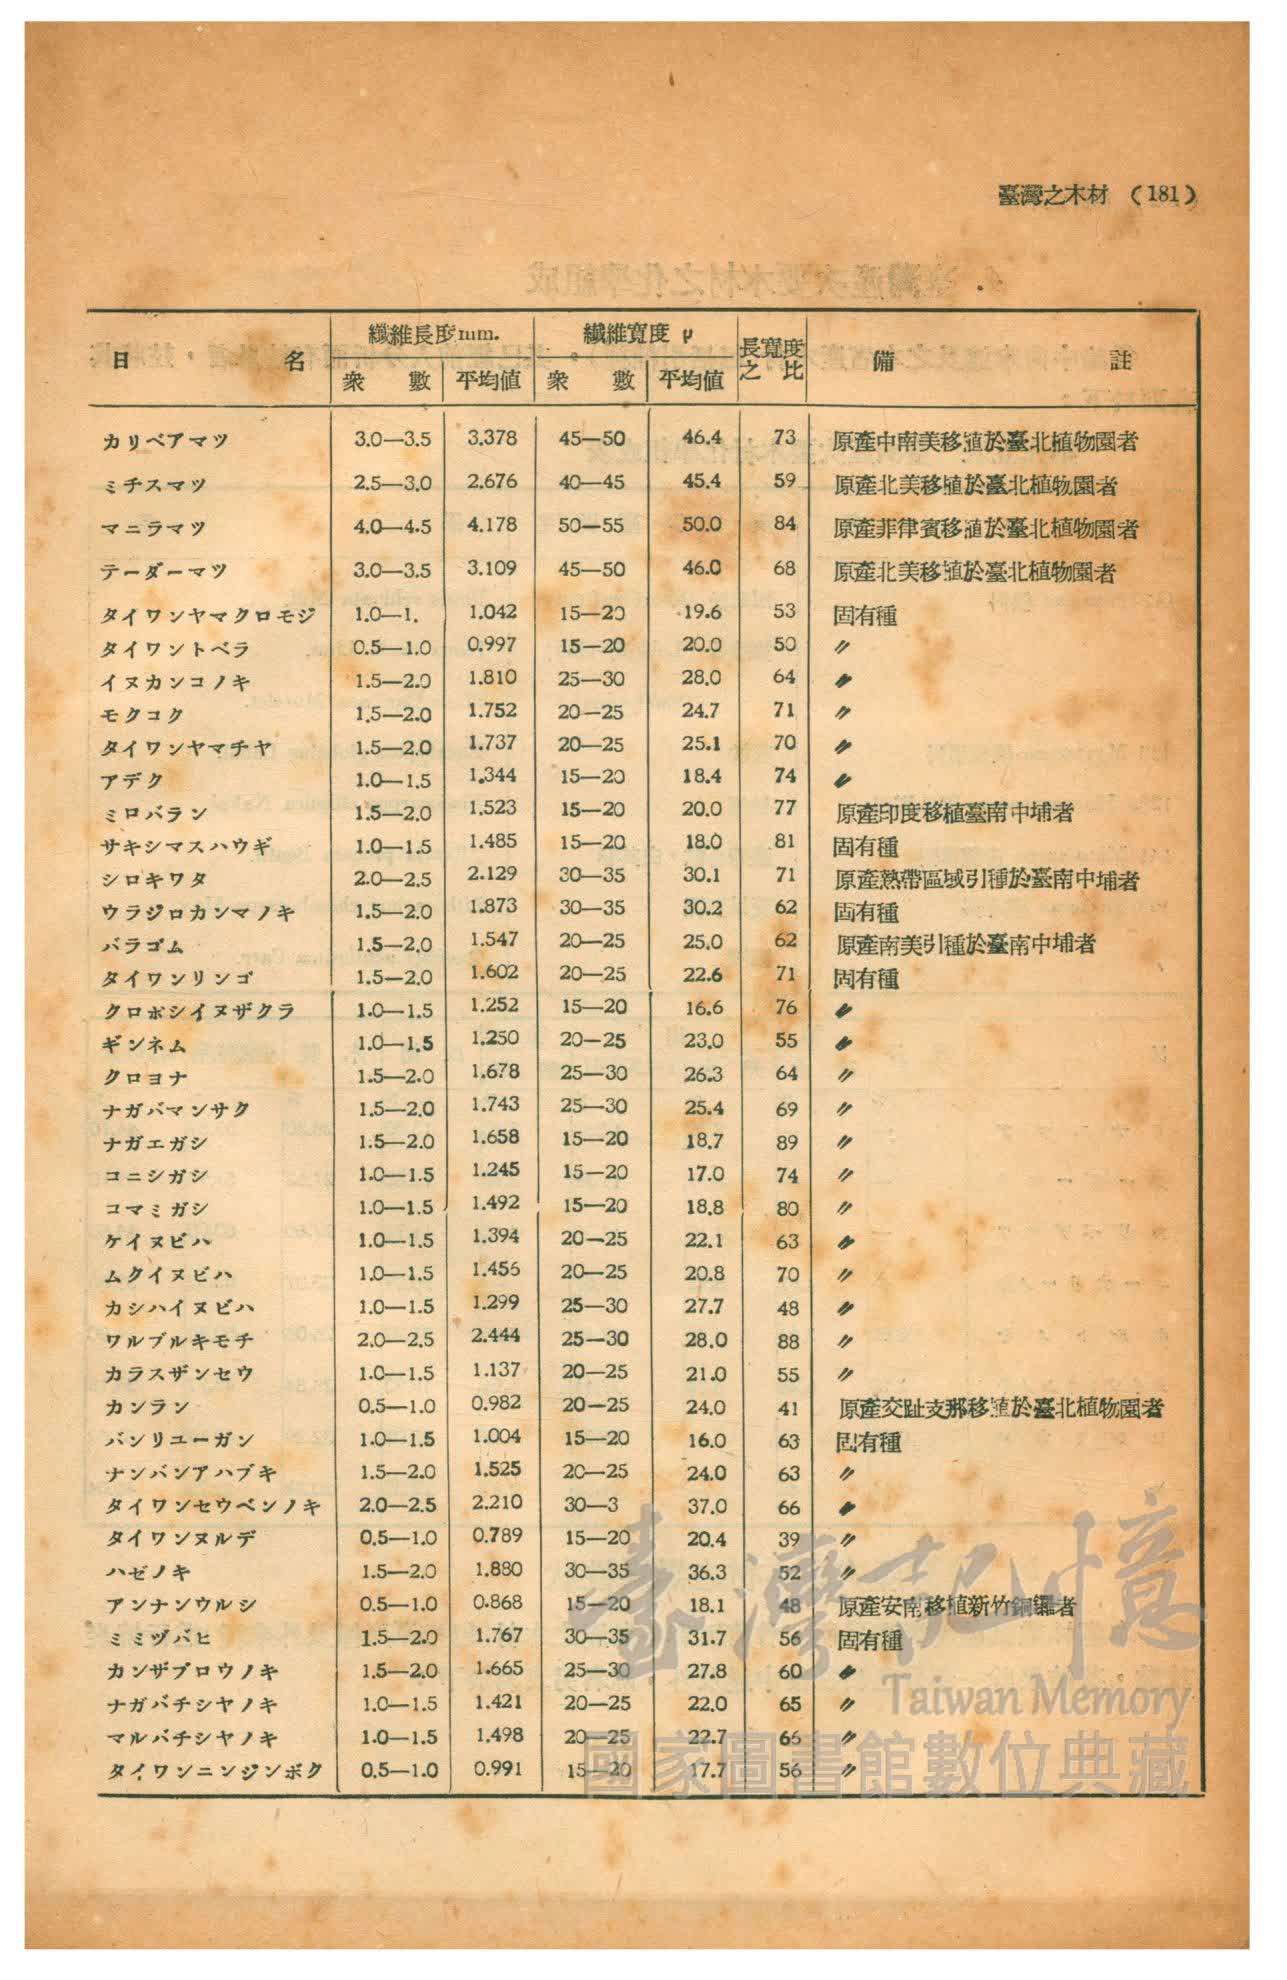 臺灣之木材 (181)
日 名 纖維長度mm. 纖維寬度 μ 長寬度之比 備 註
衆 數 平均値 衆 數 平均値
カリベアマツ 3.0—3.5 3.378 45—50 46.4 73 原產中南美移植於臺北植物園者
ミチスマツ 2.5—3.0 2.676 40—45 45.4 59 原產北美移植於臺北植物園者
マニラマツ 4.0—4.5 4.178 50—55 50.0 84 原產菲律賓移植於臺北植物園者
テーダーマツ 3.0—3.5 3.109 45—50 46.0 68 原產北美移植於臺北植物園者
タイワンヤマクロモジ 1.0—1. 1.042 15—20 19.6 53 固有種
タイワントベラ 0.5—1.0 0.997 15—20 20.0 50 〃
イヌカンコノキ 1.5—2.0 1.810 25—30 28.0 64 〃
モクコク 1.5—2.0 1.752 20—25 24.7 71 〃
タイワンヤマチヤ 1.5—2.0 1.737 20—25 25.1 70 〃
アデク 1.0—1.5 1.344 15—20 18.4 74 〃
ミロバラン 1.5—2.0 1.523 15—20 20.0 77 原產印度移植臺南中埔者
サキシマスハウギ 1.0—1.5 1.485 15—20 18.0 81 固有種
シロキワタ 2.0—2.5 2.129 30—35 30.1 71 原產熱帶區域引種於臺南中埔者
ウラジロカンマノキ 1.5—2.0 1.873 30—35 30.2 62 固有種
バラゴム 1.5—2.0 1.547 20—25 25.0 62 原產南美引種於臺南中埔者
タイワンリンゴ 1.5—2.0 1.602 20—25 22.6 71 固有種
クロボシイヌザクラ 1.0—1.5 1.252 15—20 16.6 76 〃
ギンネム 1.0—1.5 1.250 20—25 23.0 55 〃
クロヨナ 1.5—2.0 1.678 25—30 26.3 64 〃
ナガバマンサク 1.5—2.0 1.743 25—30 25.4 69 〃
ナガエガシ 1.5—2.0 1.658 15—20 18.7 89 〃
コニシガシ 1.0—1.5 1.245 15—20 17.0 74 〃
コマミガシ 1.0—1.5 1.492 15—20 18.8 80 〃
ケイヌビハ 1.0—1.5 1.394 20—25 22.1 63 〃
ムクイヌビハ 1.0—1.5 1.456 20—25 20.8 70 〃
カシハイヌビハ 1.0—1.5 1.299 25—30 27.7 48 〃
ワルブルキモチ 2.0—2.5 2.444 25—30 28.0 88 〃
カラスザンセウ 1.0—1.5 1.137 20—25 21.0 55 〃
カンラン 0.5—1.0 0.982 20—25 24.0 41 原產交趾支那移植於臺北植物園者
バンリユーガン 1.0—1.5 1.004 15—20 16.0 63 固有種
ナンバンアハブキ 1.5—2.0 1.525 20—25 24.0 63 〃
タイワンセウベンノキ 2.0—2.5 2.210 30—3 37.0 66 〃
タイワンヌルデ 0.5—1.0 0.789 15—20 20.4 39 〃
ハゼノキ 1.5—2.0 1.880 30—35 36.3 52 〃
アンナンウルシ 0.5—1.0 0.868 15—20 18.1 48 原產安南移植新竹銅鑼者
ミミヅバヒ 1.5—2.0 1.767 30—35 31.7 56 固有種
カンザブロウノキ 1.5—2.0 1.665 25—30 27.8 60 〃
ナガバチシヤノキ 1.0—1.5 1.421 20—25 22.0 65 〃
マルバチシヤノキ 1.0—1.5 1.498 20—25 22.7 66 〃
タイワンニンジンボク 0.5—1.0 0.991 15—20 17.7 56 〃
臺灣記憶
Taiwan Memory
國家圖書館數位典藏